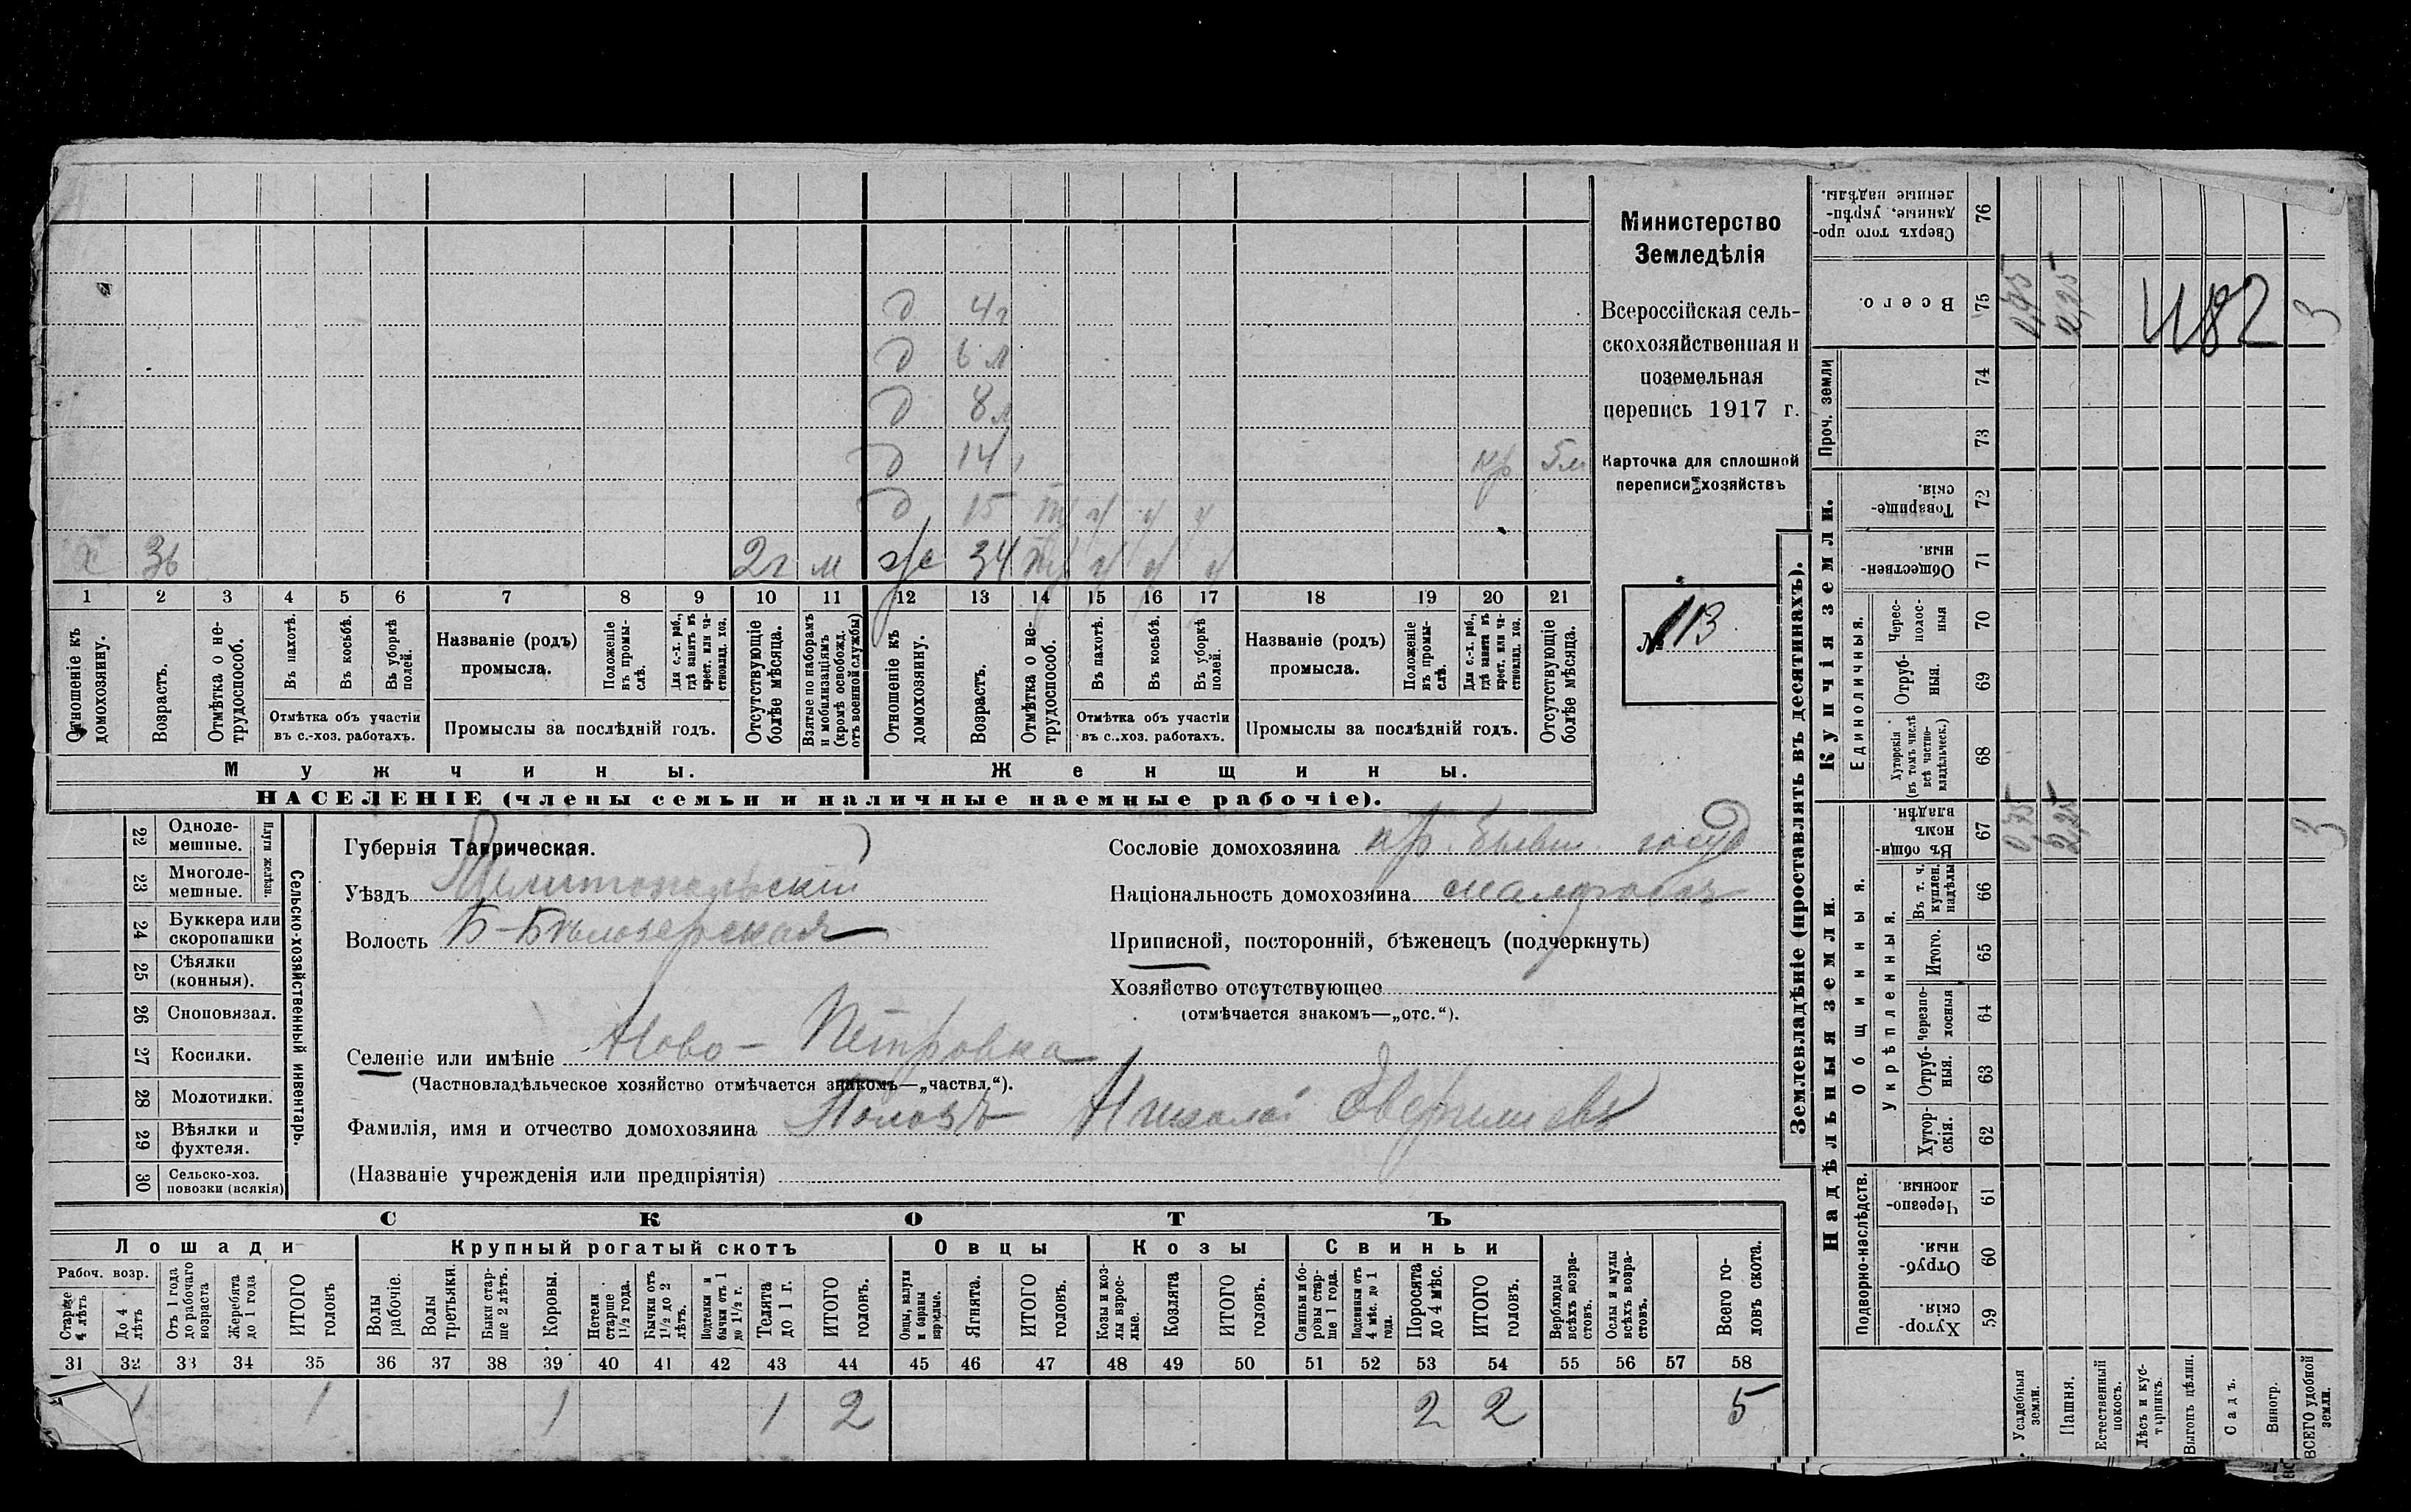 д 4 г
д 6 л
д 8 л
д 14 кр 5 м
д 15
х 36 2 г м ж 34
1 2 3 4 5 6 7 8 9 10 11 12 13 14 15 16 17 18 19 20 21
Отношеніе къ домохозяину.
Возрастъ.
Отмѣтка о нетрудоспособ.
Въ пахотѣ.
Въ косьбѣ.
Въ уборкѣ полей.
Отмѣтка объ участіи
въ с.-хоз. работахъ.
Названіе (родъ)
промысла.
Положеніе въ промыслѣ.
Для с.-х. раб., гдѣ занятъ въ крест. или частновлад. хоз.
Промыслы за послѣдній годъ.
Отсутствующіе болѣе мѣсяца.
Взятые по наборамъ и мобилизаціямъ (кромѣ освобожд. отъ военной службы)
Отношеніе къ домохозяину.
Возрастъ.
Отмѣтка о нетрудоспособ.
Въ пахотѣ.
Въ косьбѣ.
Въ уборкѣ полей.
Отмѣтка объ участіи
въ с..хоз. работахъ.
Названіе (родъ)
промысла.
Положеніе въ промыслѣ.
Для с.-х. раб., гдѣ занята въ крест. или частновлад. хоз.
Промыслы за послѣдній годъ.
Отсутствующіе болѣе мѣсяца.
Мужчины.
Женщины.
НАСЕЛЕНІЕ (члены семьи и наличные наемные рабочіе).
Министерство
Земледѣлія
Всероссійская сель-
скохозяйственная и
поземельная
перепись 1917 г.
Карточка для сплошной
переписи хозяйствъ
№ 113
Сельско-хозяйственный инвентарь.
22 Одноле-
мешные.
23 Многоле-
мешные.
24 Буккера или
скоропашки
25 Сѣялки
(конныя).
26 Сноповязал.
27 Косилки.
28 Молотилки.
29 Вѣялки и
фухтеля.
30 Сельско-хоз.
повозки (всякія)
Губернія Таврическая.
Уѣздъ Мелитопольскій
Волость Б-Бѣлозерская
Селеніе или имѣніе Ново-Петровка
(Частновладѣльческое хозяйство отмѣчается знакомъ—„частвл.“).
Фамилія, имя и отчество домохозяина Николай
(Названіе учрежденія или предпріятія)
Сословіе домохозяина кр. бывш. госуд
Національность домохозяина малороссъ
Приписной, посторонній, бѣженецъ (подчеркнуть)
Хозяйство отсутствующее
(отмѣчается знакомъ—„отс.“).
СКОТЪ
Лошади
Рабоч. возр.
Старше 4 лѣтъ
До 4 лѣтъ
Отъ 1 года до рабочаго возраста
Жеребята до 1 года
ИТОГО головъ
Крупный рогатый скотъ
Волы рабочіе.
Волы третьяки.
Быки старше 2 лѣтъ.
Коровы.
Нетели старше 1½ года.
Бычки отъ 1½ до 2 лѣтъ.
Подтелки и бычки отъ 1 до 1½ г.
Телята до 1 г.
ИТОГО головъ.
Овцы
Овцы, валухи и бараны взрослые.
Ягнята.
ИТОГО головъ.
Козы
Козы и козлы взрослые.
Козлята
ИТОГО головъ.
Свиньи
Свиньи и боровы старше 1 года.
Подсвинки отъ 4 мѣс. до 1 года.
Поросята до 4 мѣс.
ИТОГО головъ.
Верблюды всѣхъ возрастовъ.
Ослы и мулы всѣхъ возрастовъ.
Всего головъ скота.
31 32 33 34 35 36 37 38 39 40 41 42 43 44 45 46 47 48 49 50 51 52 53 54 55 56 57 58
1 1 1 1 2 2 2 5
Землевладѣніе (проставлять въ десятинахъ).
Надѣльныя земли.
Подворно-наслѣдств.
Хуторскія. 59
Отрубныя. 60
Черезполосныя 61
Общинныя.
Укрѣпленныя.
Хуторскія. 62
Отрубныя. 63
Черезполосныя 64
Итого. 65
Въ т. ч. куплен. надѣлы 66
Въ общинномъ владѣн. 67
Купчія земли.
Единоличныя.
Хуторскія (въ томъ числѣ всѣ частновладѣльческ.) 68
Отрубныя. 69
Чересполосныя 70
Общественныя. 71
Товарищескія. 72
Проч. земли
73
74
Всего. 75
Сверхъ того проданные, укрѣпленные надѣлы. 76
Усадебныя земли. 0,75
Пашня. 2,25 2,25
Естественный покосъ.
Лѣсъ и кустарникъ.
Выгонъ цѣлин.
Садъ.
Виногр.
ВСЕГО удобной земли. 3 3